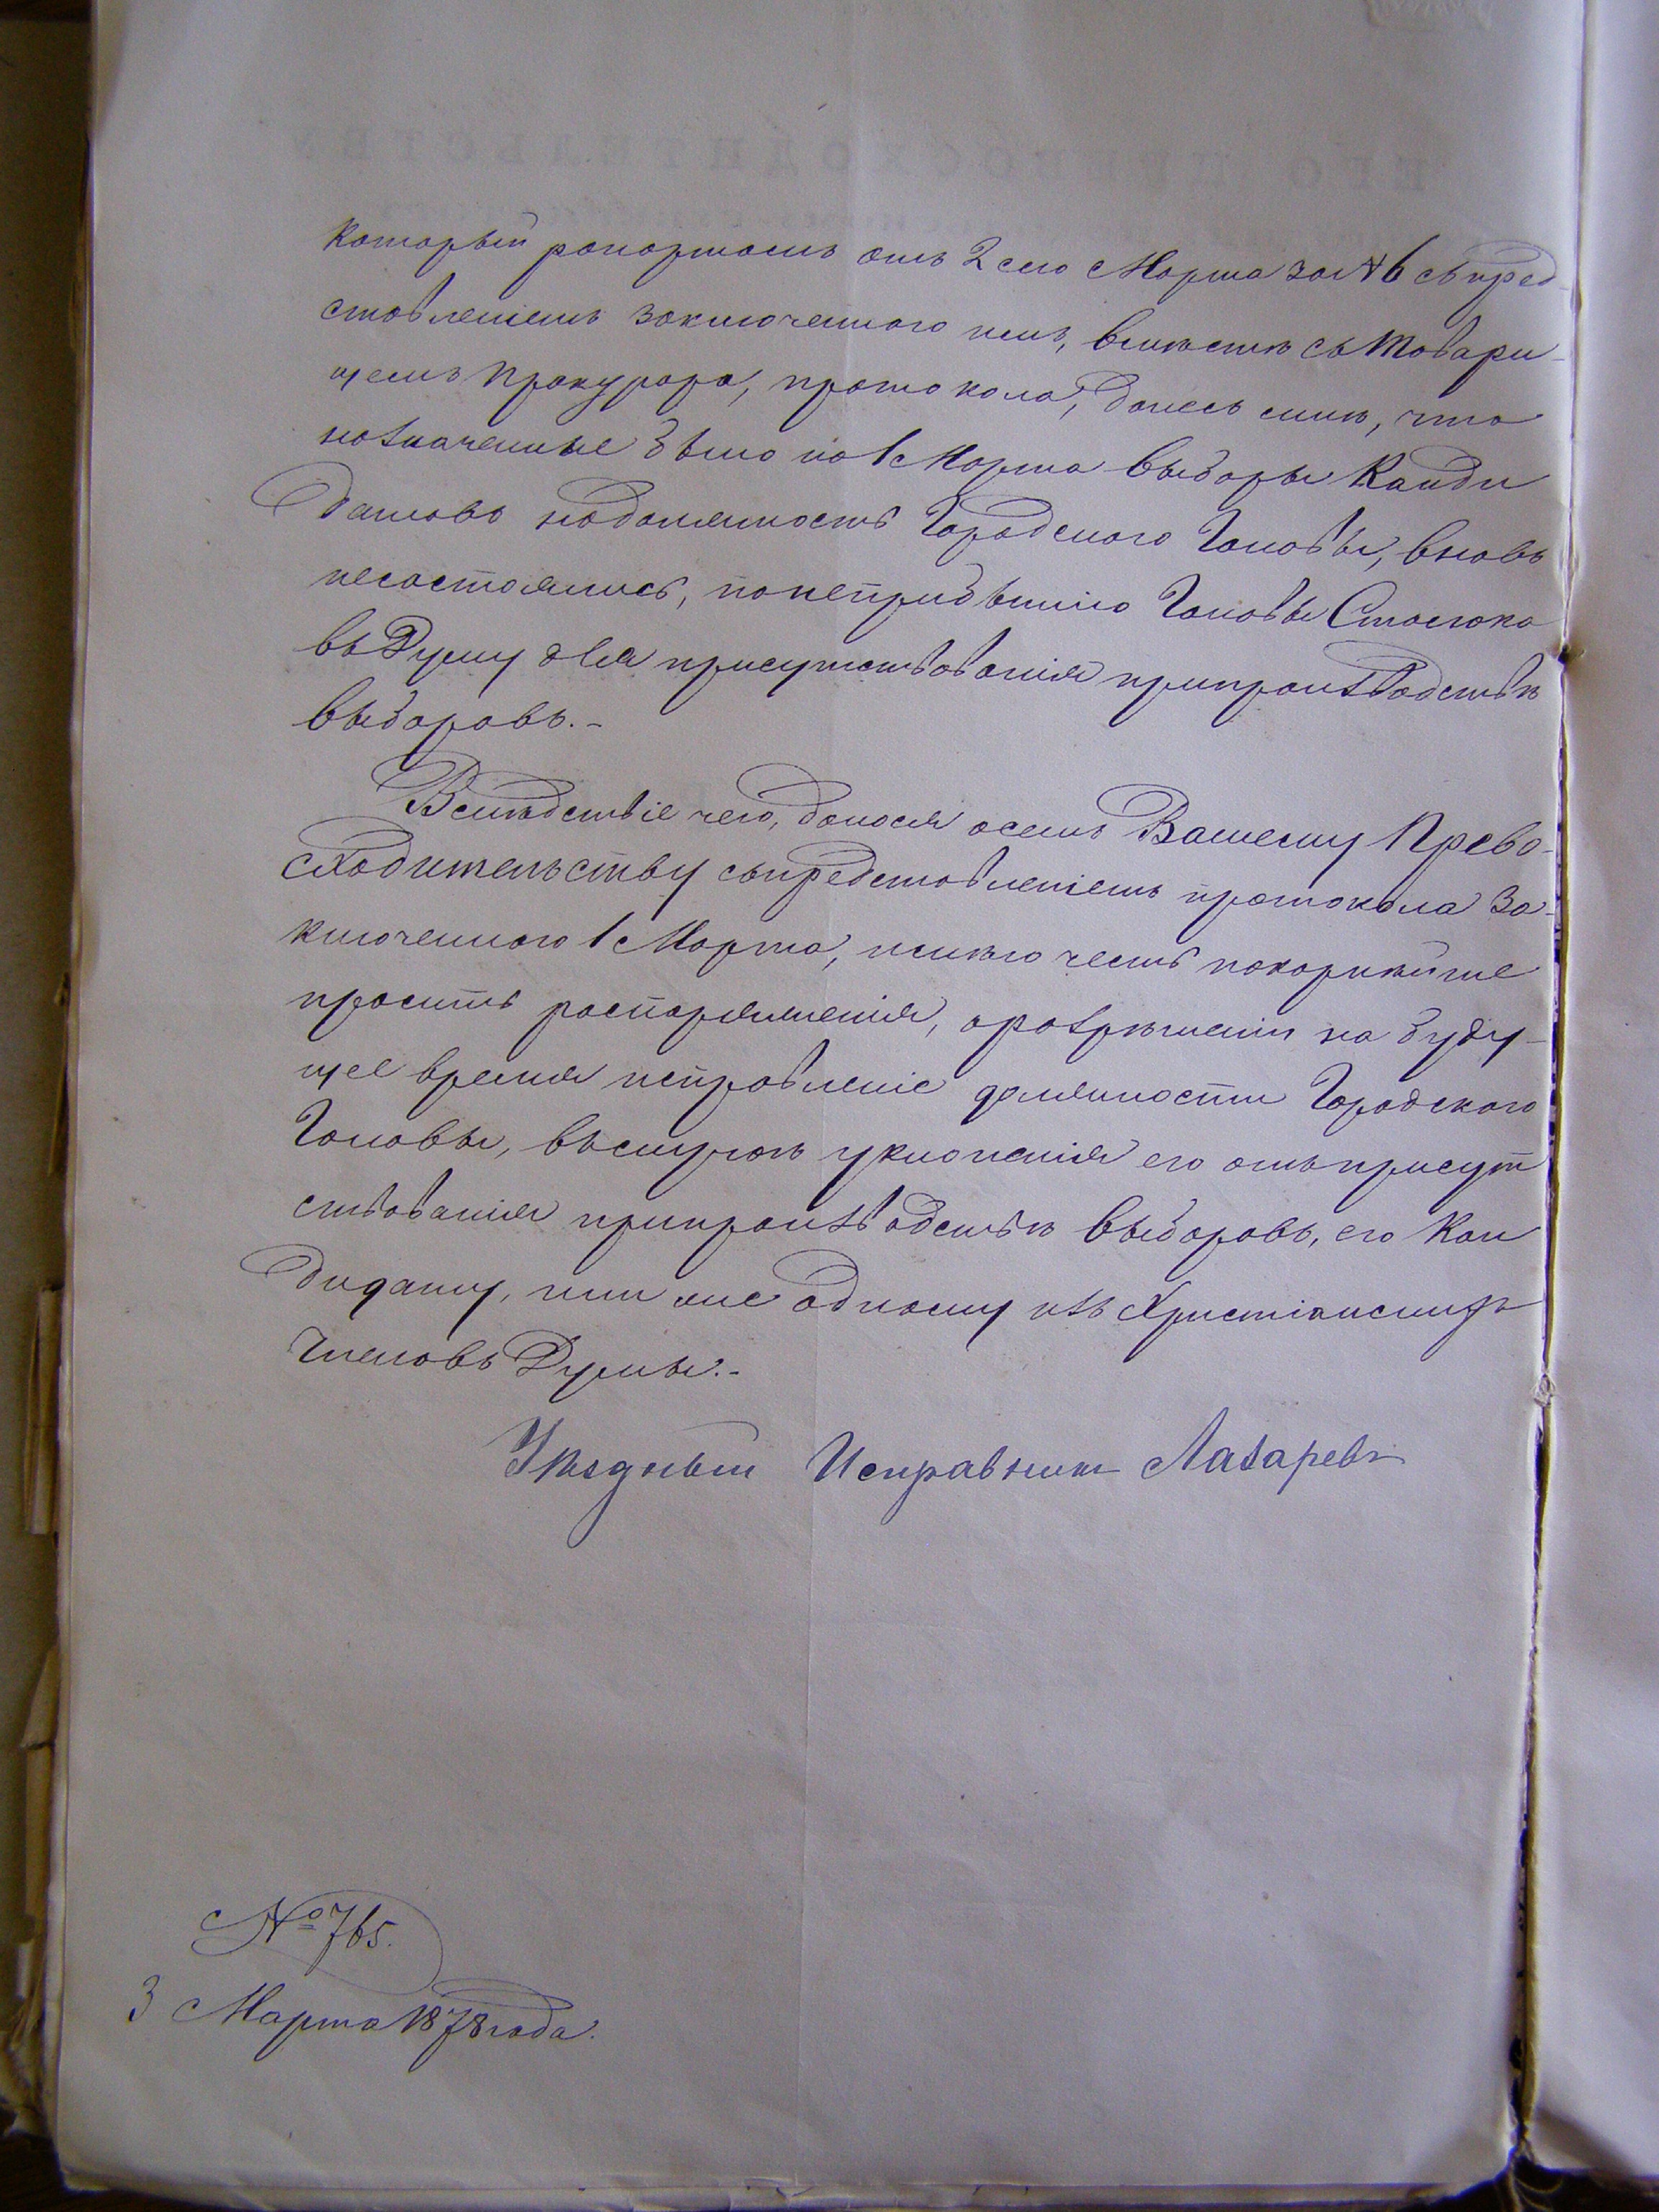 ЕГО ПРЕВОСХОДИТЕЛЬСТВУ
который рапортомъ отъ 2 сего Марта за № 6 съ пред-
ставленіемъ заключеннаго имъ, вмѣстѣ съ Товари-
щемъ Прокурора, протокола, донесъ мнѣ, что
назначенные было на 1 Марта выборы Канди
датовъ на должность Городскаго Головы, вновь
несостоялись, по неприбытію Головы Стасюка
въ Думу для присутствованія при производствѣ
выборовъ.-
Вслѣдствіе чего, донося о семъ Вашему Прево-
сходительству съ представленіемъ протокола за-
ключеннаго 1 Марта, имѣю честь покорнѣйше
просить распоряженія, о разрѣшеніи на буду-
щее время исправленіе должности Городскаго
Головы, въ случаѣ уклоненія его отъ присут
ствованія при производствѣ выборовъ, его Кан
дидату, или же одному изъ Христіанскихъ
Членовъ Думы.-
Уѣздный Исправникъ Лазаревъ
№ 765.
3 Марта 1878 года.